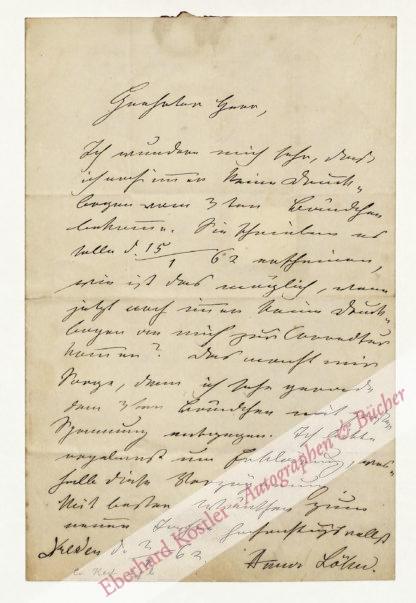 Geehrter Herr,
Ich wundere mich sehr, daß
ich noch immer keine Druck-
bogen vom 3ten Bändchen
bekomme. Sie schreiben es
solle d. 15/1 62 erscheinen,
wie ist das möglich, wenn
jetzt noch immer keine Druck-
bogen an mich zur Correctur
kommen? Das macht mir
Sorge, denn ich sehe gerade
dem 3ten Bändchen mit
Spannung entgegen. Ich bitte
ergebenst um Erklärung, wes-
halb diese Verzögerung
Mit besten Wünschen zum
neuen hochachtungsvollst
Dresden d. 2 62. Anna Löhn.
Eberhard Köstler - Autographen & Bücher